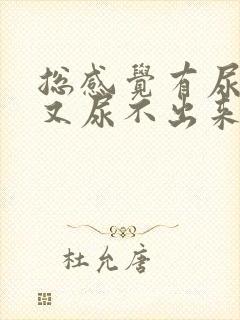 总感覺有尿
又尿不出来
杜允唐